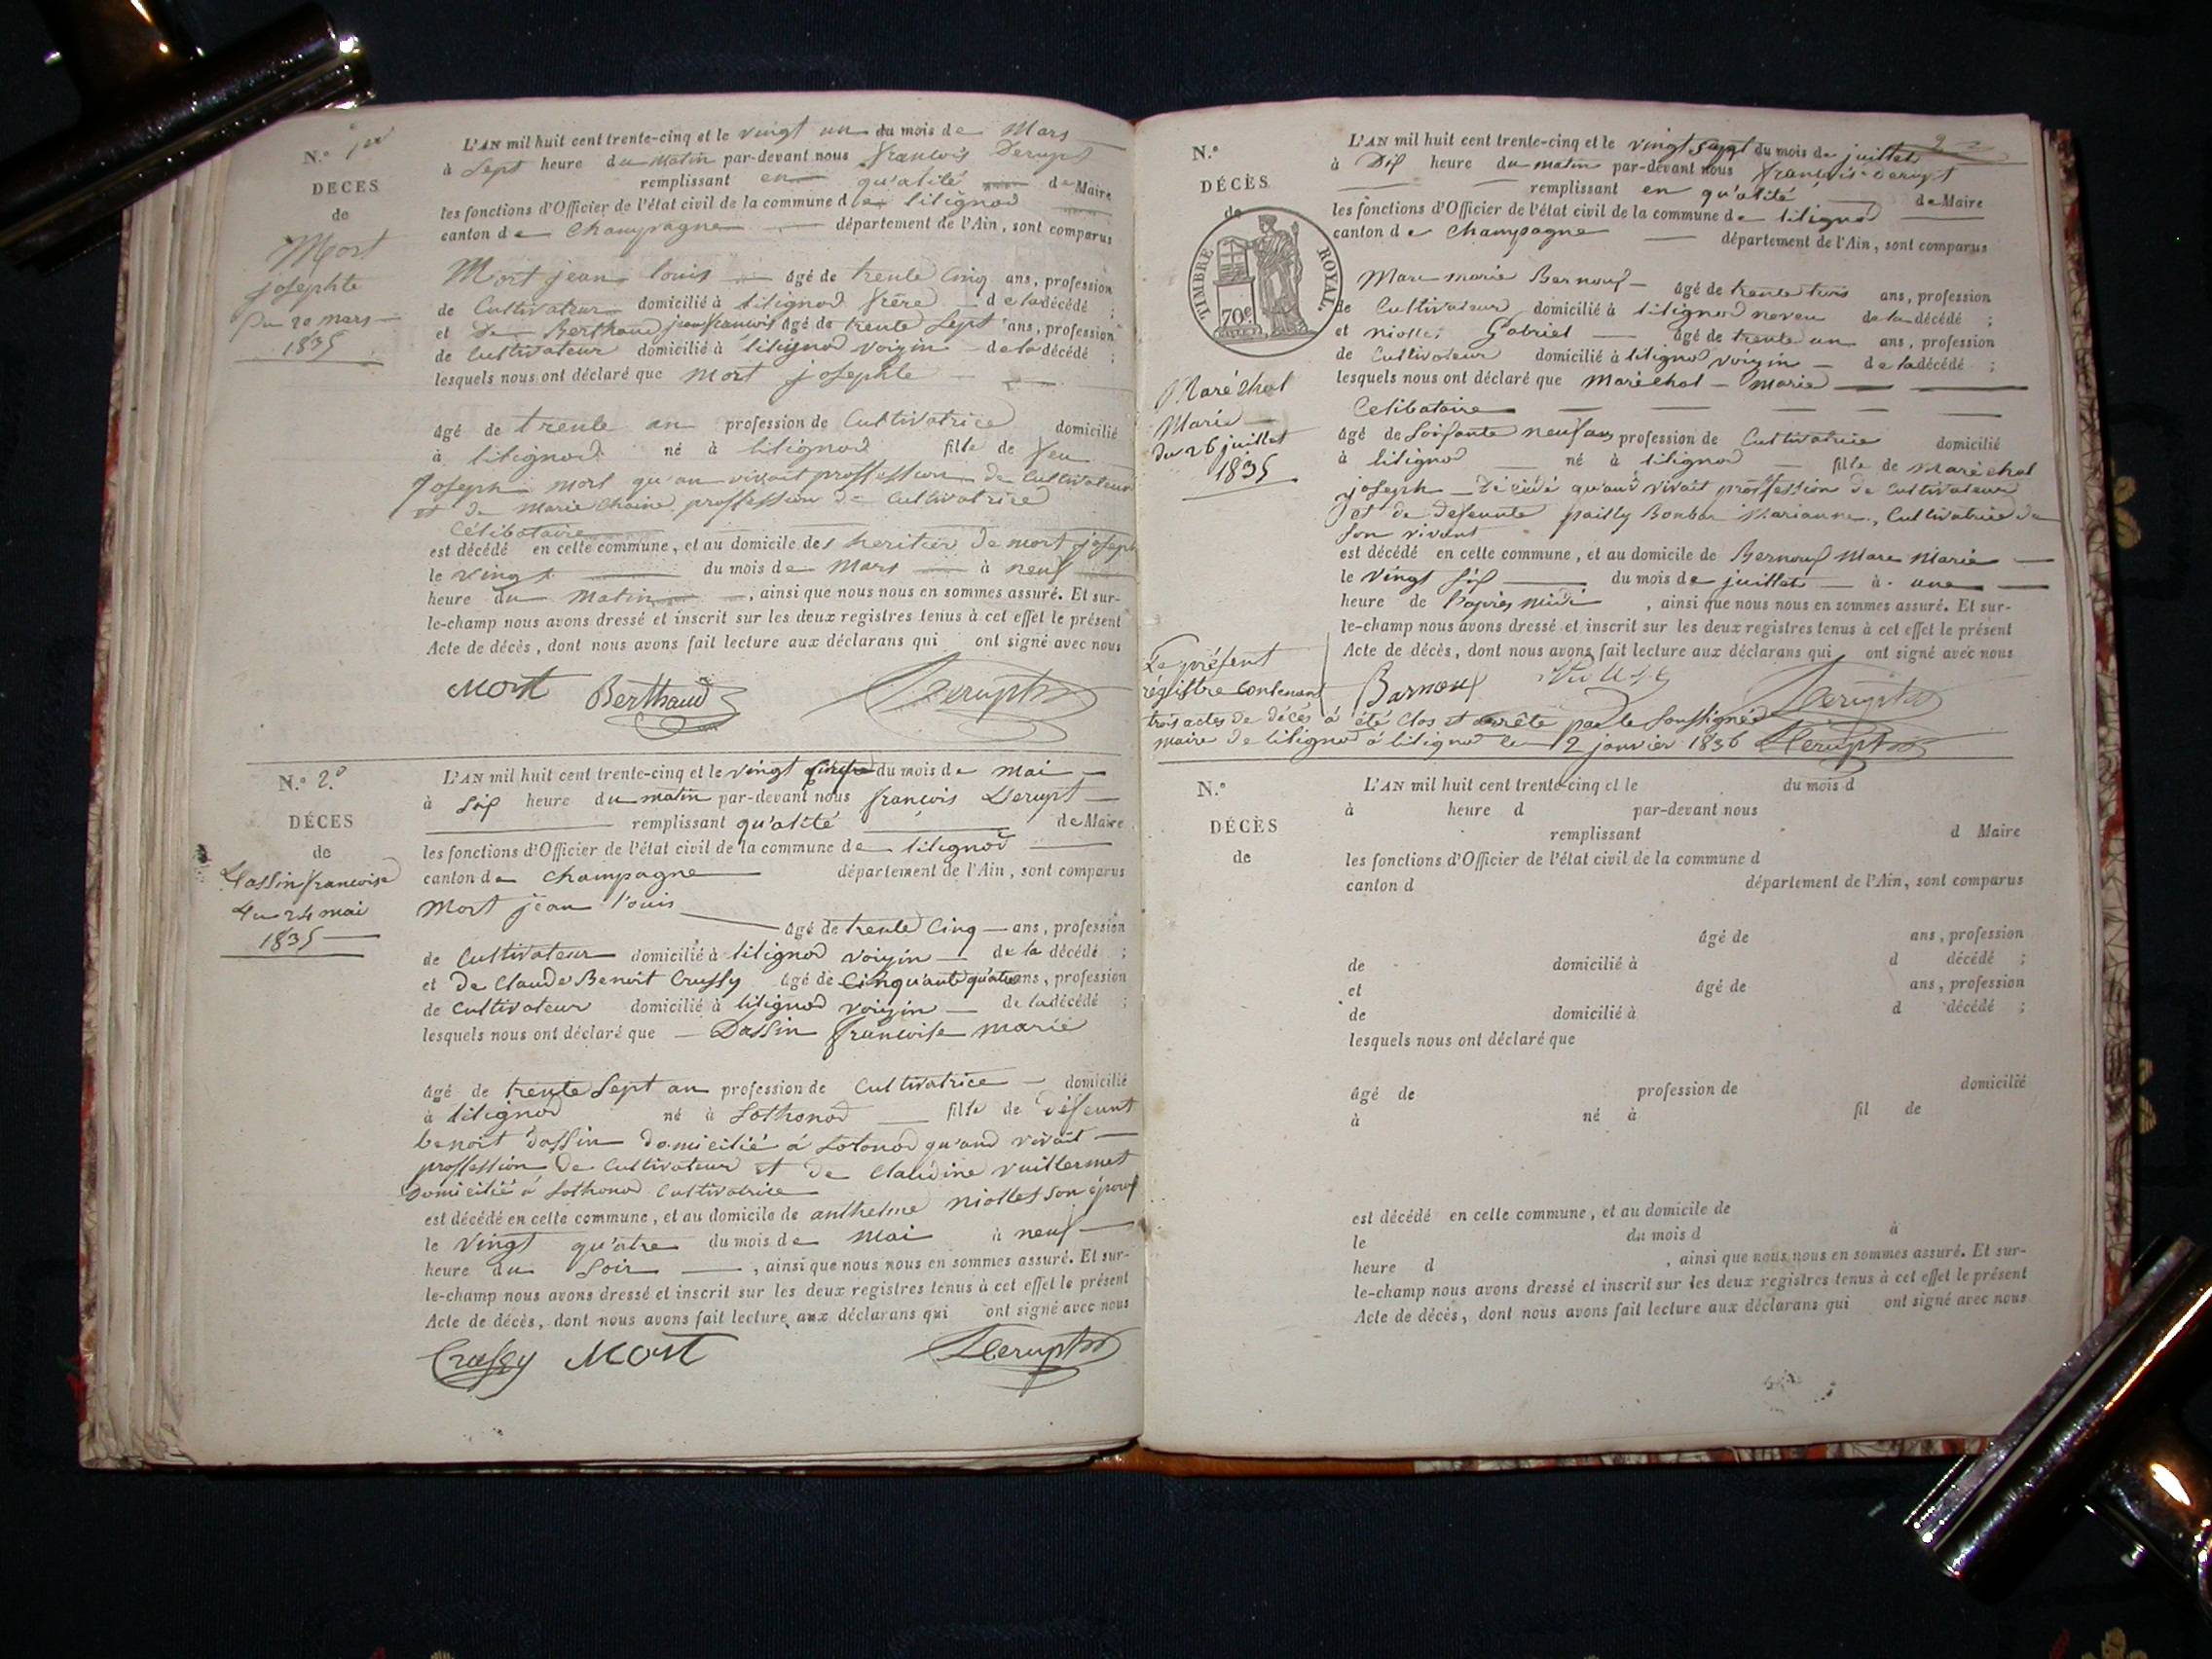 N.º 1er
DÉCÈS
de
Mort
josephte
du 20 mars
1835
L'AN mil huit cent trente-cinq et le vingt un du mois de Mars
à sept heure du matin par-devant nous françois Derupt
remplissant en qu'alité de Maire
les fonctions d'Officier de l'état civil de la commune de litignod
canton de Champagne département de l'Ain, sont comparus
Mort jean louis âgé de trente cinq ans, profession
de Cultivateur domicilié à litignod frère de la décédé ;
et de Berthaud jean françois âgé de trente sept ans, profession
de Cultivateur domicilié à litignod voizin de la décédé ;
lesquels nous ont déclaré que Mort josephte
âgé de trente an profession de Cultivatrice domicilié
à litignod né à litignod fille de feu
joseph mort qu'an vivait proffession de Cultivateur
et de Marie Chaine proffession de Cultivatrice
Célibataire
est décédé en cette commune, et au domicile des heritier de mort joseph
le vingt du mois de Mars à neuf
heure du matin, ainsi que nous nous en sommes assuré. Et sur-
le-champ nous avons dressé et inscrit sur les deux registres tenus à cet effet le présent
Acte de décès, dont nous avons fait lecture aux déclarans qui ont signé avec nous
Mort Berthaud Derupt
N.º 2.º
DÉCES
de
Dassin francoise
du 24 mai
1835
L'AN mil huit cent trente-cinq et le vingt du mois de mai
à six heure du matin par-devant nous françois Derupt
remplissant qu'alité de Maire
les fonctions d'Officier de l'état civil de la commune de litignod
canton de Champagne département de l'Ain, sont comparus
Mort jean louis
âgé de trente Cinq ans, profession
de Cultivateur domicilié à litignod voizin de la décédé ;
et de Claude Benoit Crussy âgé de Cinquante quatre ans, profession
de Cultivateur domicilié à litignod voizin de la décédé ;
lesquels nous ont déclaré que Dassin francoise marie
âgé de trente Sept an profession de Cultivatrice domicilié
à litignod né à Sothonod fille de défeunt
benoit dassin domicilié à Sotonod qu'and vivait
proffession de Cultivateur et de Claudine vuillermet
domicilié à Sothonod Cultivatrice
est décédé en cette commune, et au domicile de anthelme niollet son épouf
le Vingt qu'atre du mois de Mai à neuf
heure du Soir, ainsi que nous nous en sommes assuré. Et sur-
le-champ nous avons dressé et inscrit sur les deux registres tenus à cet effet le présent
Acte de décès, dont nous avons fait lecture aux déclarans qui ont signé avec nous
Crussy Mort Derupt
2
N.º
DÉCÈS
de
TIMBRE ROYAL.
70c
Maréchal
Marie
du 26 juillet
1835
L'AN mil huit cent trente-cinq et le vingt sept du mois de juillet
à Dix heure du matin par-devant nous françois Derupt
remplissant en qu'alité de Maire
les fonctions d'Officier de l'état civil de la commune de litignod
canton de Champagne département de l'Ain, sont comparus
Marc marie Bernouf âgé de trente trois ans, profession
de Cultivateur domicilié à litignod neveu de la décédé ;
et niollet Gabriel âgé de trente un ans, profession
de Cultivateur domicilié à litignod voizin de la décédé ;
lesquels nous ont déclaré que Maréchal Marie
Celibataire
âgé de Soifante neuf ans profession de Cultivatrice domicilié
à litignod né à litignod fille de Maréchal
joseph décédé qu'and vivait proffession de Cultivateur
et de defeunte pailly Bonbar Marianne, Cultivatrice de
Son vivant
est décédé en cette commune, et au domicile de Bernouf Marc Marie
le Vingt six du mois de juillet à une
heure de l'après midi, ainsi que nous nous en sommes assuré. Et sur-
le-champ nous avons dressé et inscrit sur les deux registres tenus à cet effet le présent
Acte de décès, dont nous avons fait lecture aux déclarans qui ont signé avec nous
Barnouf Derupt
Le présent
régistre contenant
trois actes de décès à été Clos et arrête par le soussigné
maire de litignod à litignod le 12 janvier 1836 Derupt
N.º
DÉCÈS
de
L'AN mil huit cent trente-cinq et le du mois d
à heure d par-devant nous
remplissant d Maire
les fonctions d'Officier de l'état civil de la commune d
canton d département de l'Ain, sont comparus
âgé de ans, profession
de domicilié à d décédé ;
et âgé de ans, profession
de domicilié à d décédé ;
lesquels nous ont déclaré que
âgé de profession de domicilié
à né à fil de
est décédé en cette commune, et au domicile de
le du mois d à
heure d , ainsi que nous nous en sommes assuré. Et sur-
le-champ nous avons dressé et inscrit sur les deux registres tenus à cet effet le présent
Acte de décès, dont nous avons fait lecture aux déclarans qui ont signé avec nous